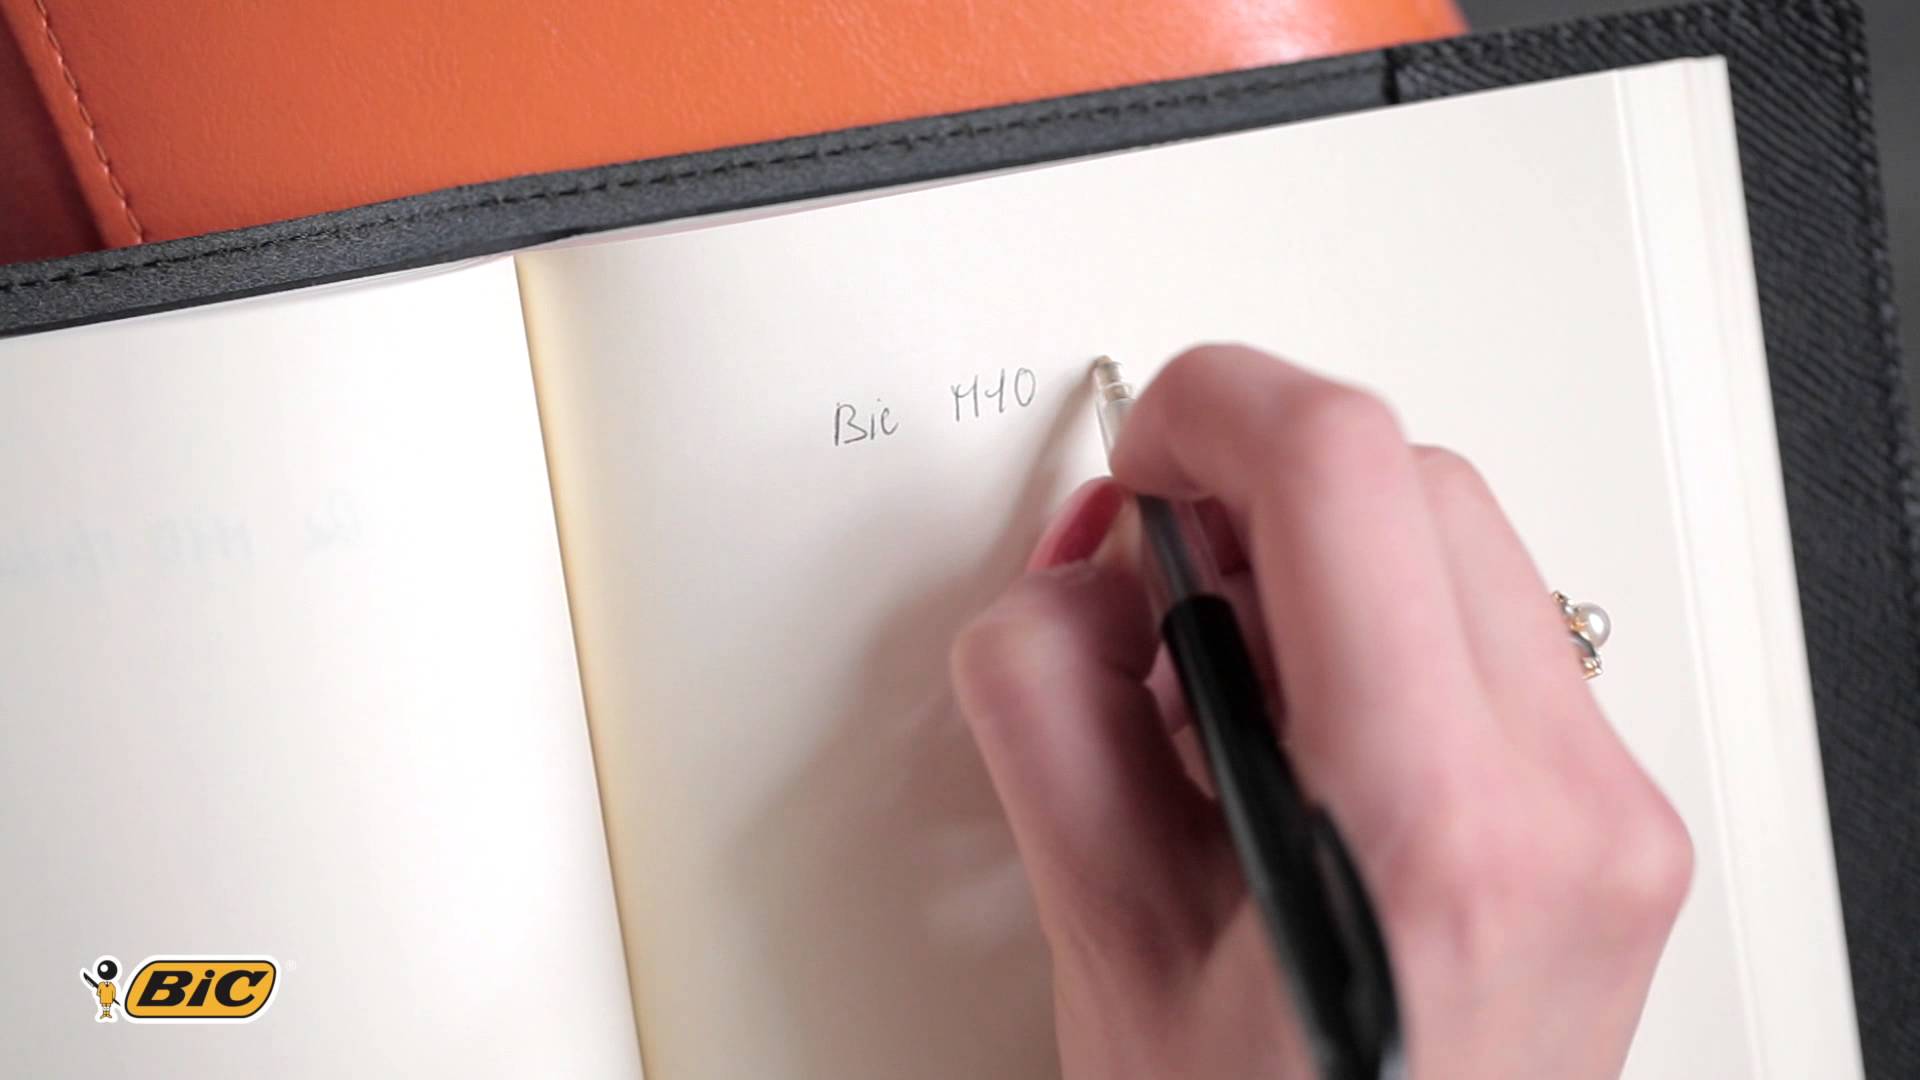 Bic M10
BiC